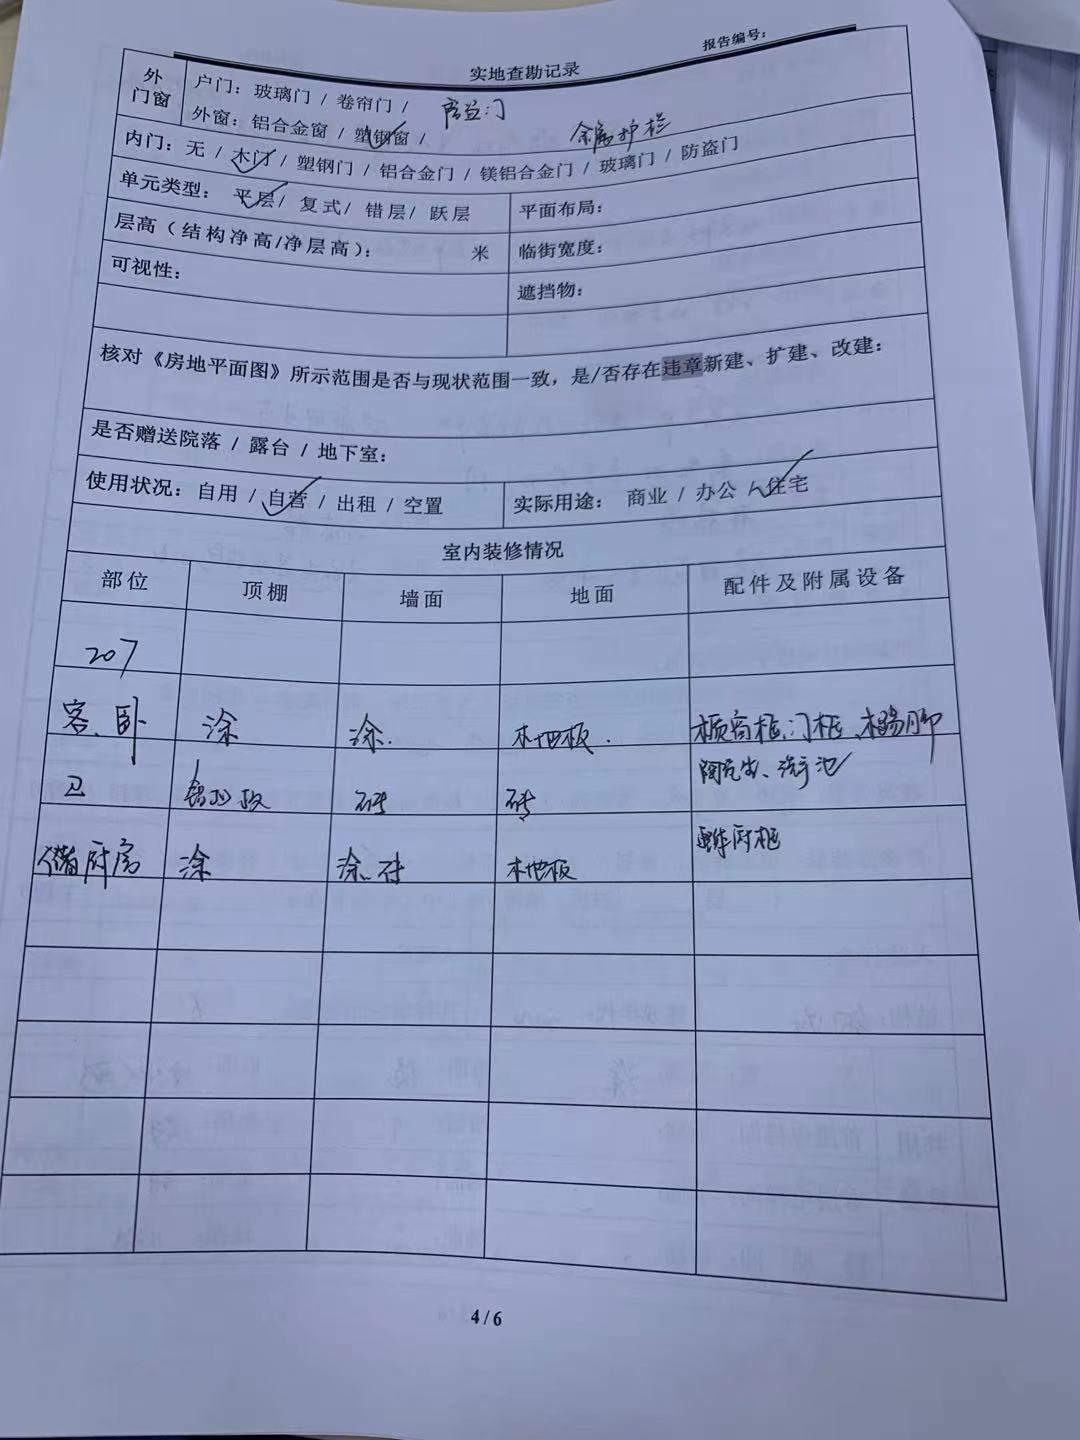 报告编号：
实地查勘记录
外门窗
户门：玻璃门 / 卷帘门 / 防盗门
外窗：铝合金窗 / 塑钢窗 / 金属护栏
内门：无 / 木门 / 塑钢门 / 铝合金门 / 镁铝合金门 / 玻璃门 / 防盗门
单元类型： 平层 / 复式 / 错层 / 跃层 平面布局：
层高（结构净高/净层高）： 米 临街宽度：
可视性： 遮挡物：
核对《房地平面图》所示范围是否与现状范围一致，是/否存在违章新建、扩建、改建：
是否赠送院落 / 露台 / 地下室：
使用状况：自用 / 自营 / 出租 / 空置 实际用途： 商业 / 办公 / 住宅
室内装修情况
部位 顶棚 墙面 地面 配件及附属设备
207
客、卧 涂 涂. 木地板. 门柜、
卫 砖 砖 洗手池
厨房 涂 涂.砖 木地板 厨柜
4 / 6